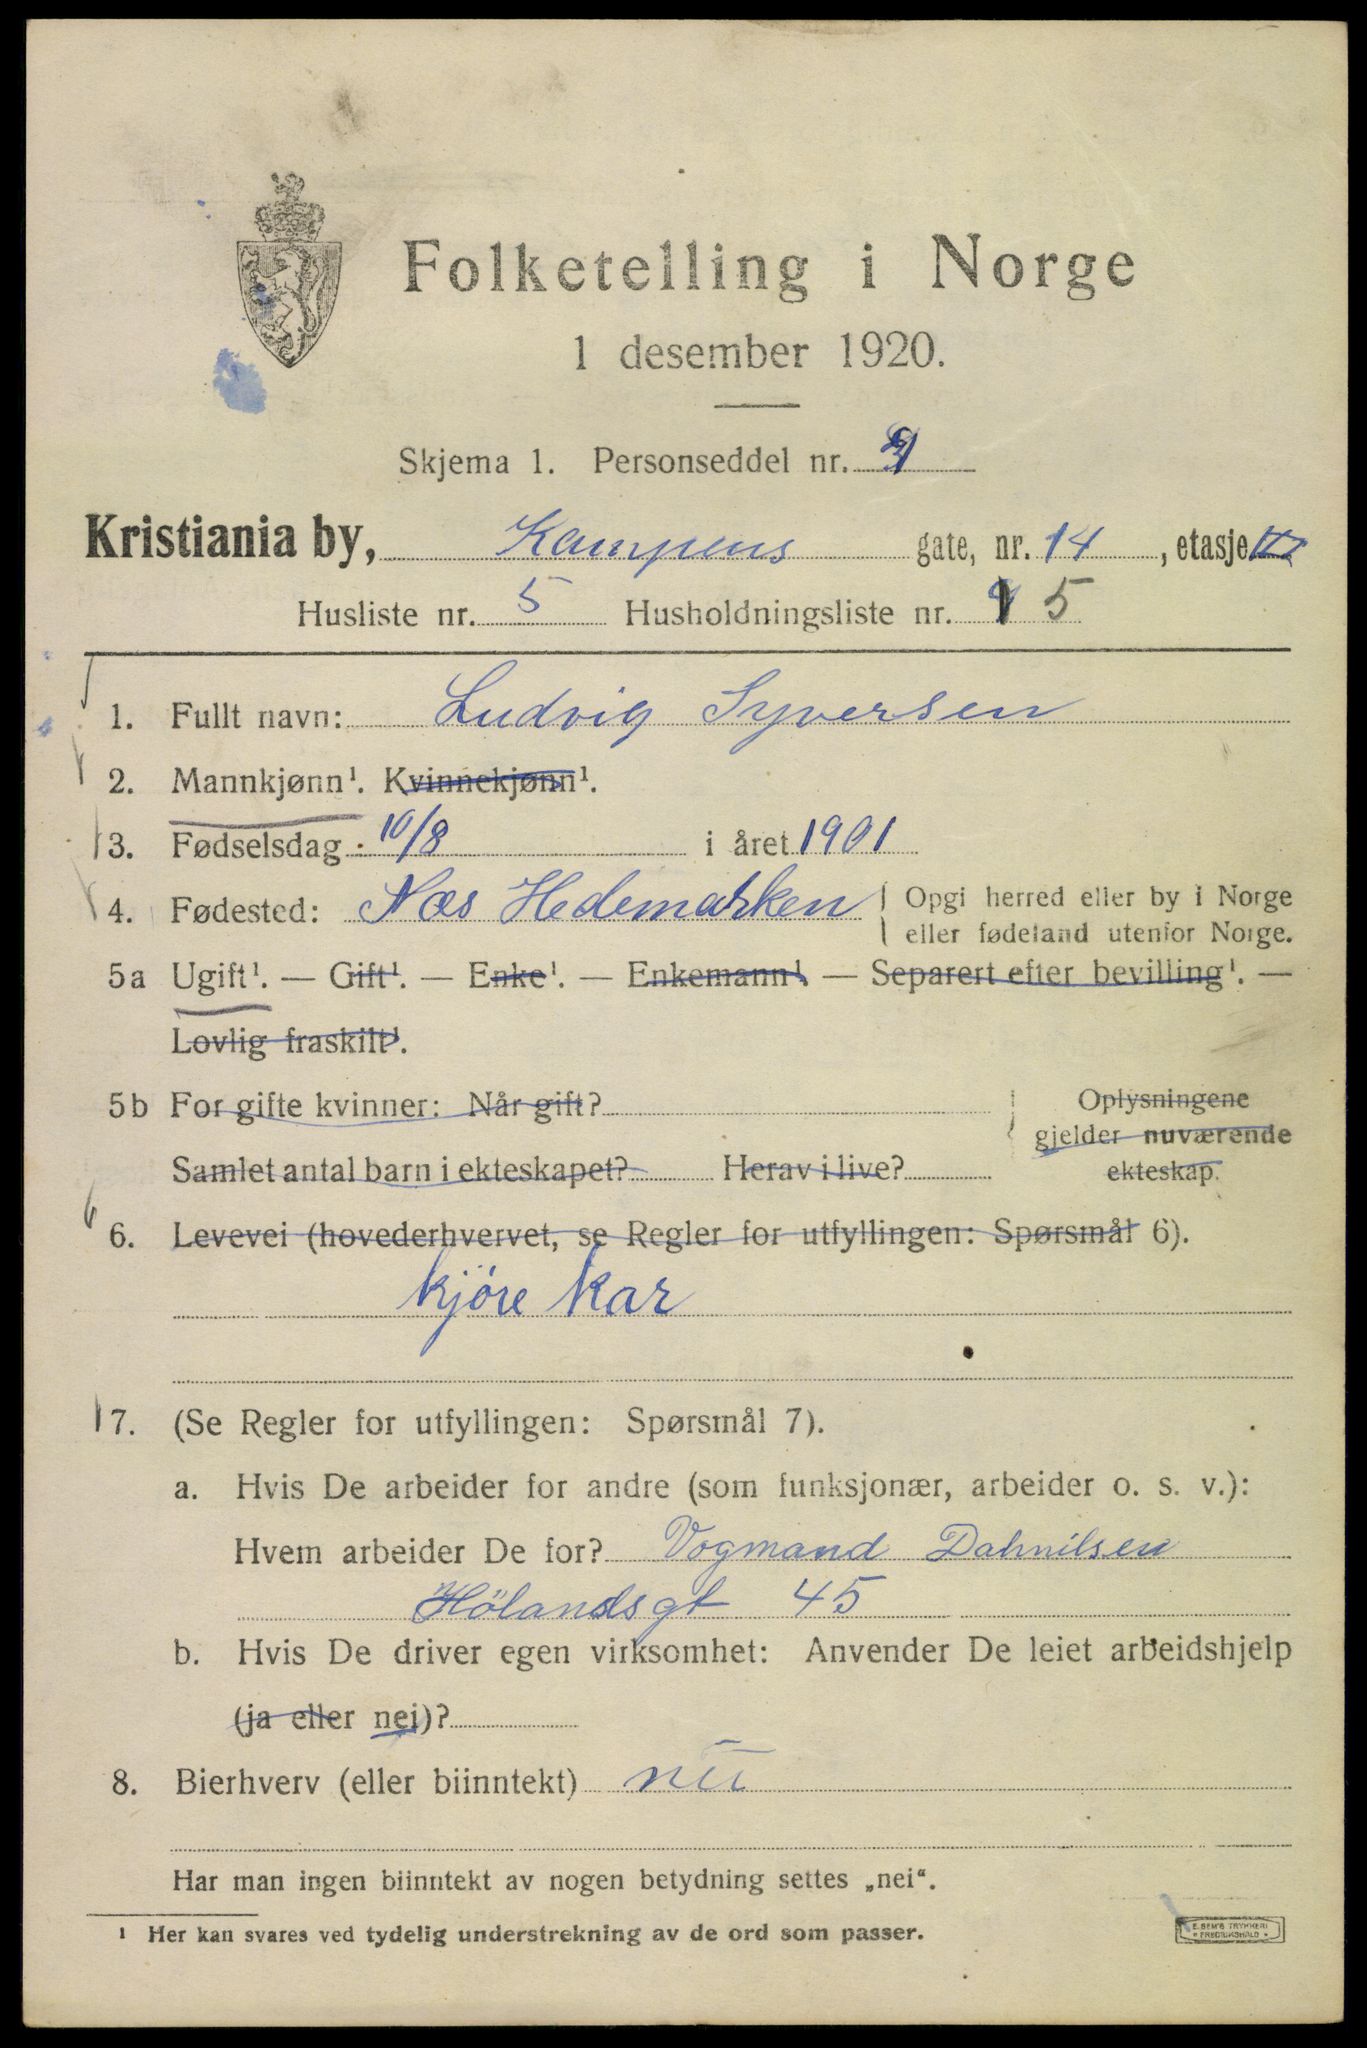 Folketelling i Norge
1 desember 1920.
Skjema 1. Personseddel nr.
Kristiania by, Kampens gate, nr. 14, etasje III
Husliste nr. 5 Husholdningsliste nr. 5
1. Fullt navn: Ludvig Syversen
2. Mannkjønn¹. Kvinnekjønn¹.
3. Fødselsdag: 10/8 i året 1901
4. Fødested: Næs Hedemarken
Opgi herred eller by i Norge
eller fødeland utenfor Norge.
5a Ugift¹. — Gift¹. — Enke¹. — Enkemann¹. — Separert efter bevilling¹. —
Lovlig fraskilt¹.
5b For gifte kvinner: Når gift?
Samlet antal barn i ekteskapet? Herav i live?
Oplysningene
gjelder nuværende
ekteskap.
6. Levevei (hovederhvervet, se Regler for utfyllingen: Spørsmål 6).
Kjöre Kar
7. (Se Regler for utfyllingen: Spørsmål 7).
a. Hvis De arbeider for andre (som funksjonær, arbeider o. s. v.):
Hvem arbeider De for? Vogmand Dahnilsen
Hölandsgt 45
b. Hvis De driver egen virksomhet: Anvender De leiet arbeidshjelp
(ja eller nei)?
8. Bierhverv (eller biinntekt) nei
Har man ingen biinntekt av nogen betydning settes „nei“.
¹ Her kan svares ved tydelig understrekning av de ord som passer.
E. SEM'S TRYKKERI
* FREDRIKSHALD *